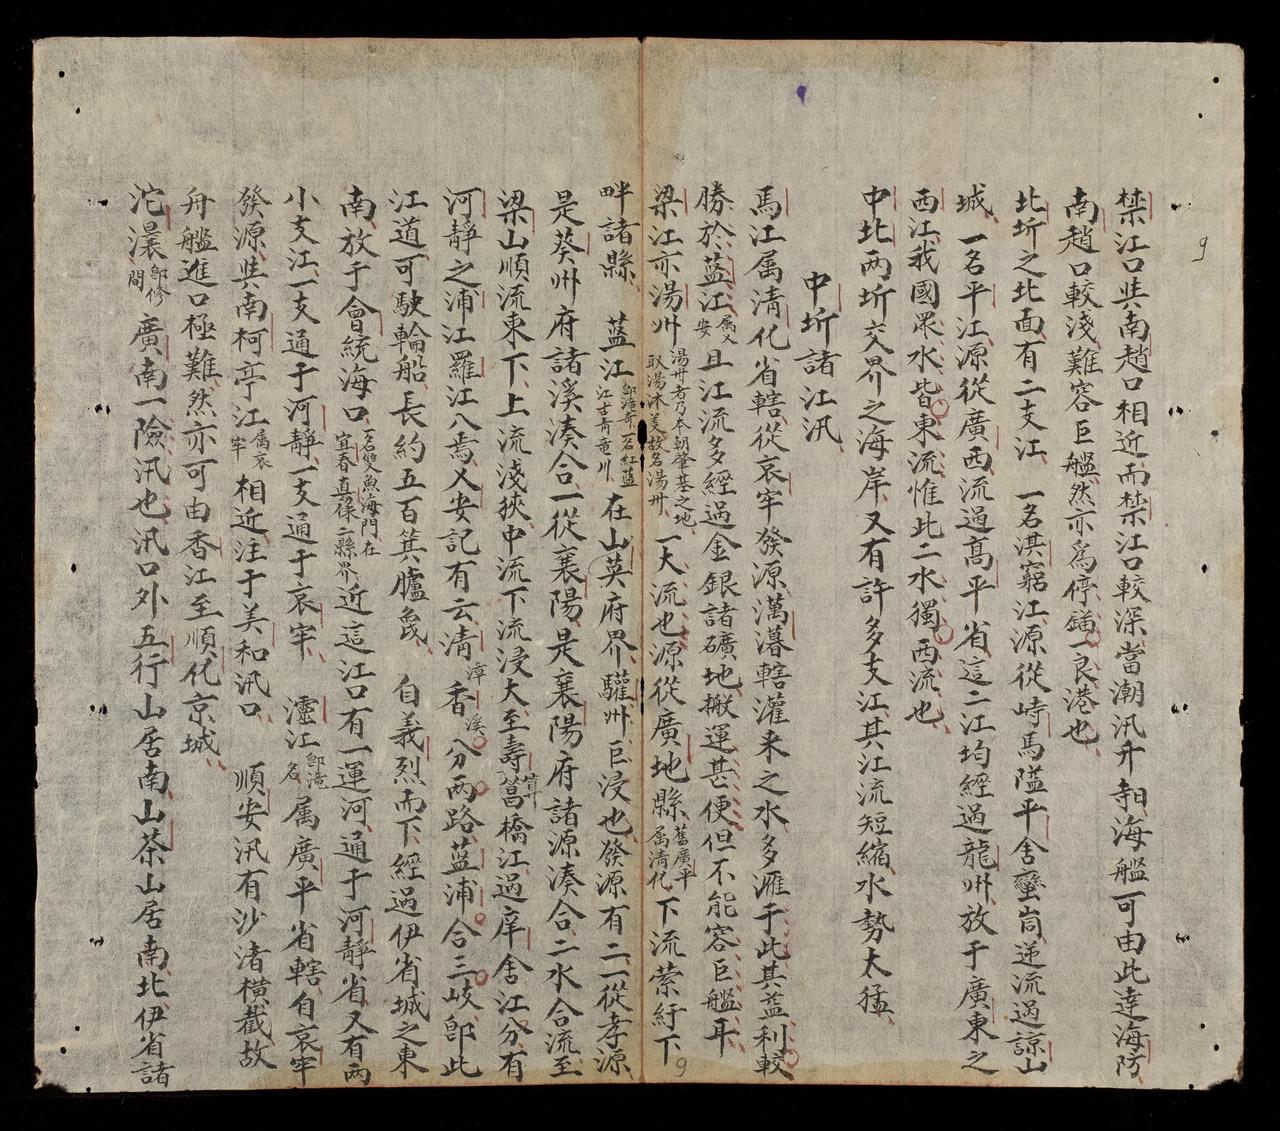 禁江口與南趙口相近而禁江口較深當潮汛升朝海艦可由此達海防
南趙口較淺難容巨艦然亦爲停錨一良港也
北圻之北面有二支江 一名淇窮江源從峙馬隘平舍蠻峝逆流過諒山
城 一名平江源從廣西流過髙平省這二江均經過龍州放于廣東之
西江我國眾水皆東流惟此二水獨西流也
中北兩圻交界之海岸又有許多支江其江流短縮水勢太猛
中圻諸江汛
馬江属清化省轄從哀牢發源滿暮轄灌来之水多滙于此其益利較
勝於藍江属乂安且江流多經過金銀諸礦地搬運甚便但不能容巨艦耳
梁江亦湯州湯州者乃本朝肇基之地取湯沐美故名湯州一大流也源從廣地縣舊廣平属清化下流縈紆下
畔諸縣 藍江即滄奇石紅藍江古青竜川在山英府界驩州巨浸也發源有二一從孝源
是葵州府諸溪湊合一從襄陽是襄陽府諸源湊合二水合流至
梁山順流東下上流淺狹中流下流浸大至壽菖橋江過庠舍江分有
河靜之浦江羅江入焉乂安記有云清漳香溪分兩路藍浦合三岐卽此
江道可駛輪船長約五百箕臚㲋 自義烈而下經過伊省城之東
南放于會統海口一名雙魚海門在宜春真祿二縣界近這江口有一運河通于河靜省又有兩
小支江一支通于河靜一支通于哀牢 瀍江卽滝名属廣平省轄自哀牢
發源與南柯亭江属哀牢相近注于美和汛口 順安汛有沙渚横截故
舟艦進口極難然亦可由香江至順化京城
沱瀼卽修間廣南一險汛也汛口外五行山居南山茶山居南北伊省諸